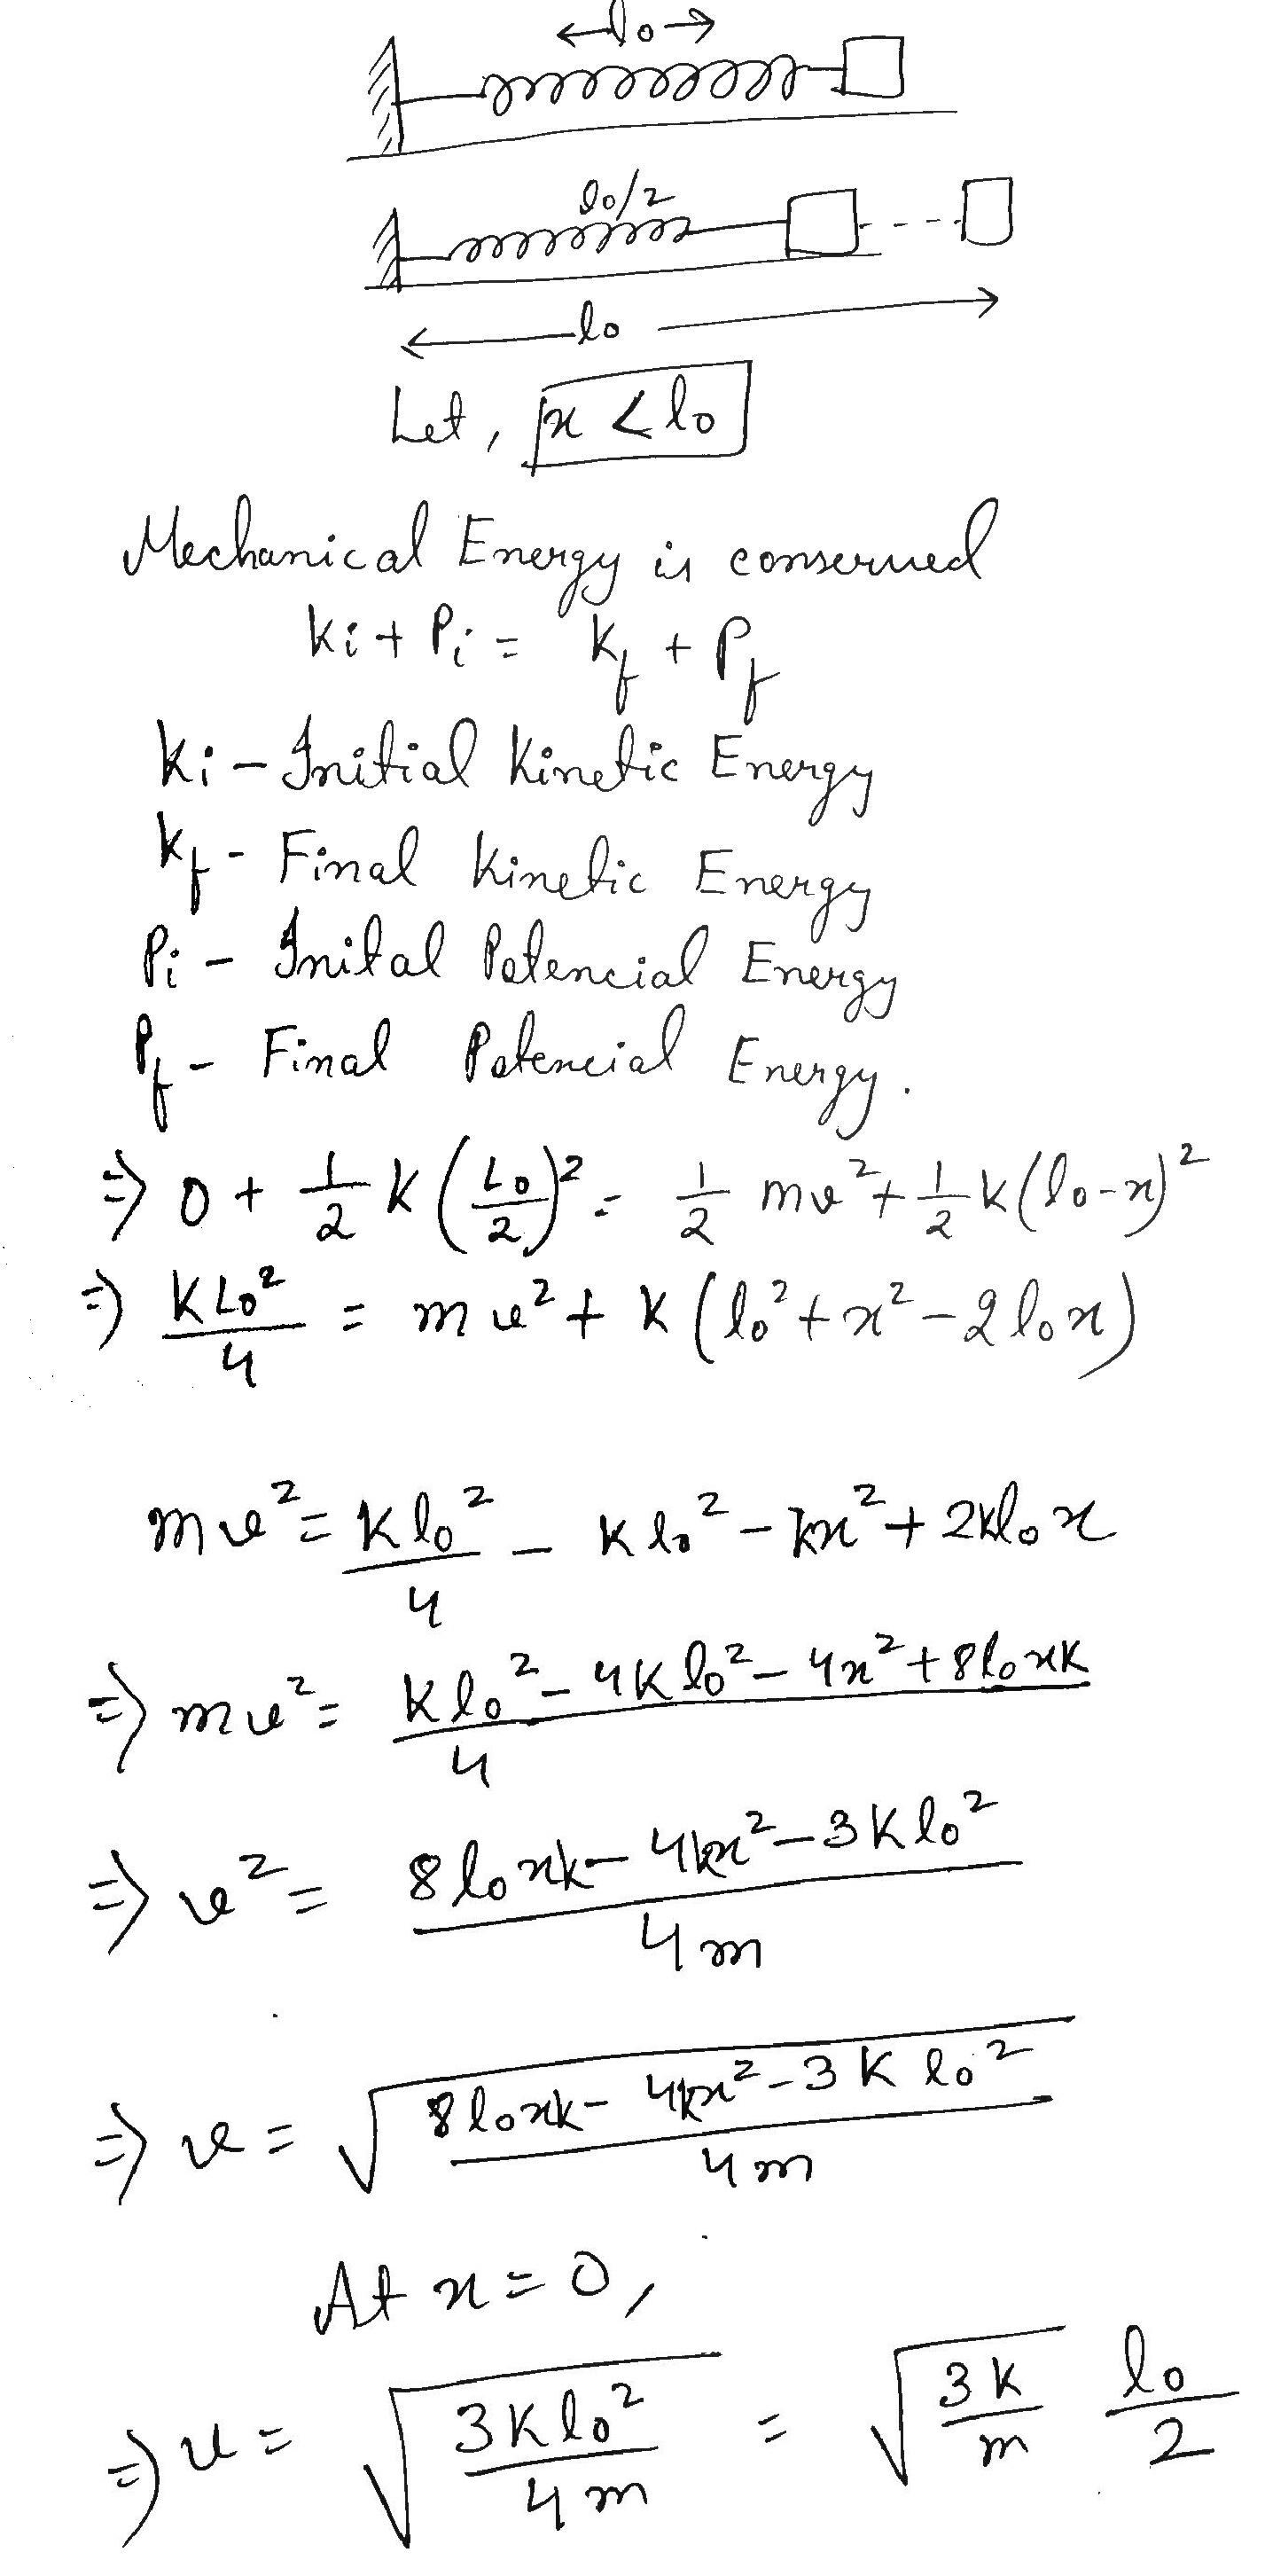 l₀
l₀/2
l₀
Let, x < l₀
Mechanical Energy is conserved
Ki + Pi = Kf + Pf
Ki - Initial Kinetic Energy
Kf - Final Kinetic Energy
Pi - Inital Potencial Energy
Pf - Final Potencial Energy.
⇒ 0 + 1/2 K (L₀/2)² = 1/2 mv² + 1/2 K(l₀-x)²
⇒ KL₀²/4 = mv² + K (l₀² + x² - 2l₀x)
mv² = Kl₀²/4 - Kl₀² - kx² + 2kl₀x
⇒ mv² = (Kl₀² - 4Kl₀² - 4x² + 8l₀xK)/4
⇒ v² = (8l₀xk - 4kx² - 3Kl₀²)/4m
⇒ v = √((8l₀xk - 4kx² - 3Kl₀²)/4m)
At x = 0,
⇒ v = √(3Kl₀²/4m) = √(3K/m) l₀/2